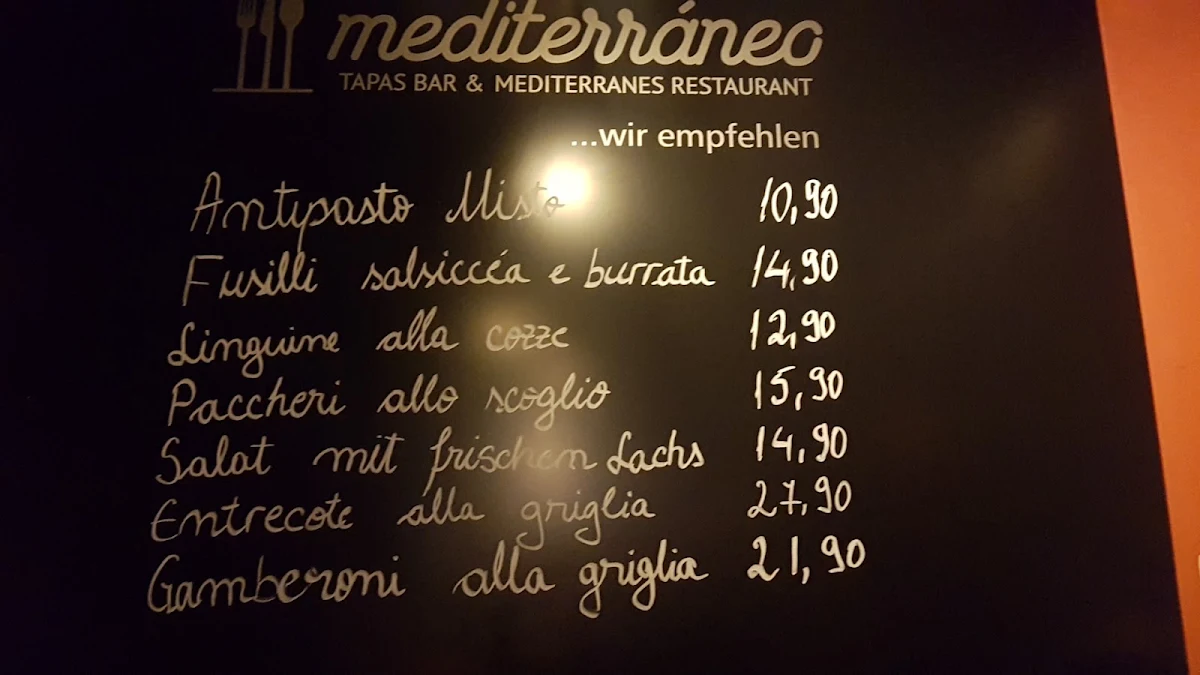 mediterráneo
TAPAS BAR & MEDITERRANES RESTAURANT
...wir empfehlen
Antipasto Misto 10,90
Fusilli salsiccéa e burrata 14,90
Linguine alla cozze 12,90
Paccheri allo scoglio 15,90
Salat mit frischem Lachs 14,90
Entrecote alla griglia 27,90
Gamberoni alla griglia 21,90